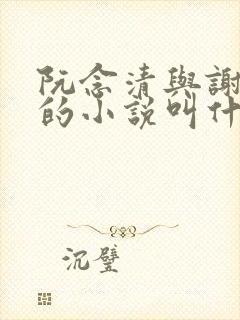 阮念清與謝
的小說叫什
沉壁